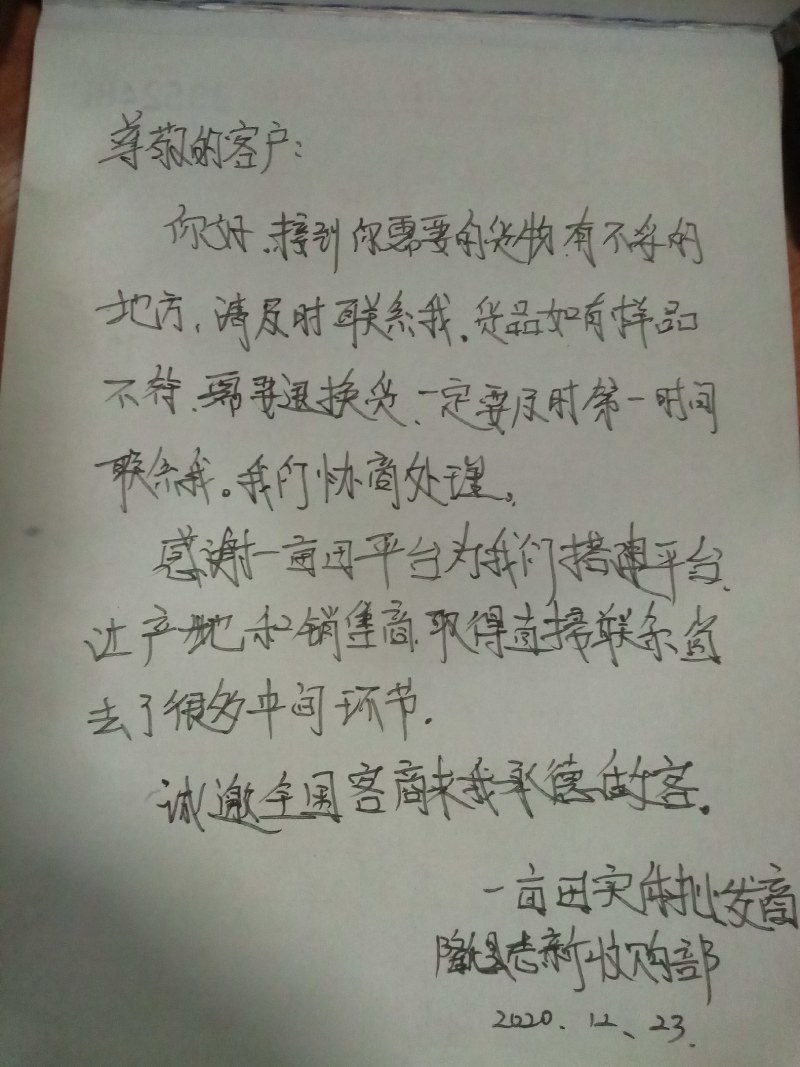 尊敬的客户:
你好.接到你需要的货物.有不符的
地方,请及时联系我.货品如有样品
不符.需要退换货、一定要及时第一时间
联系我。我们协商处理。
感谢一亩田平台为我们搭建平台.
让产地和销售商.取得直接联系省
去了很多中间环节.
诚邀全国客商来我承德做客。
一亩田实体批发商
隆化县志新收购部
2020.12、23.